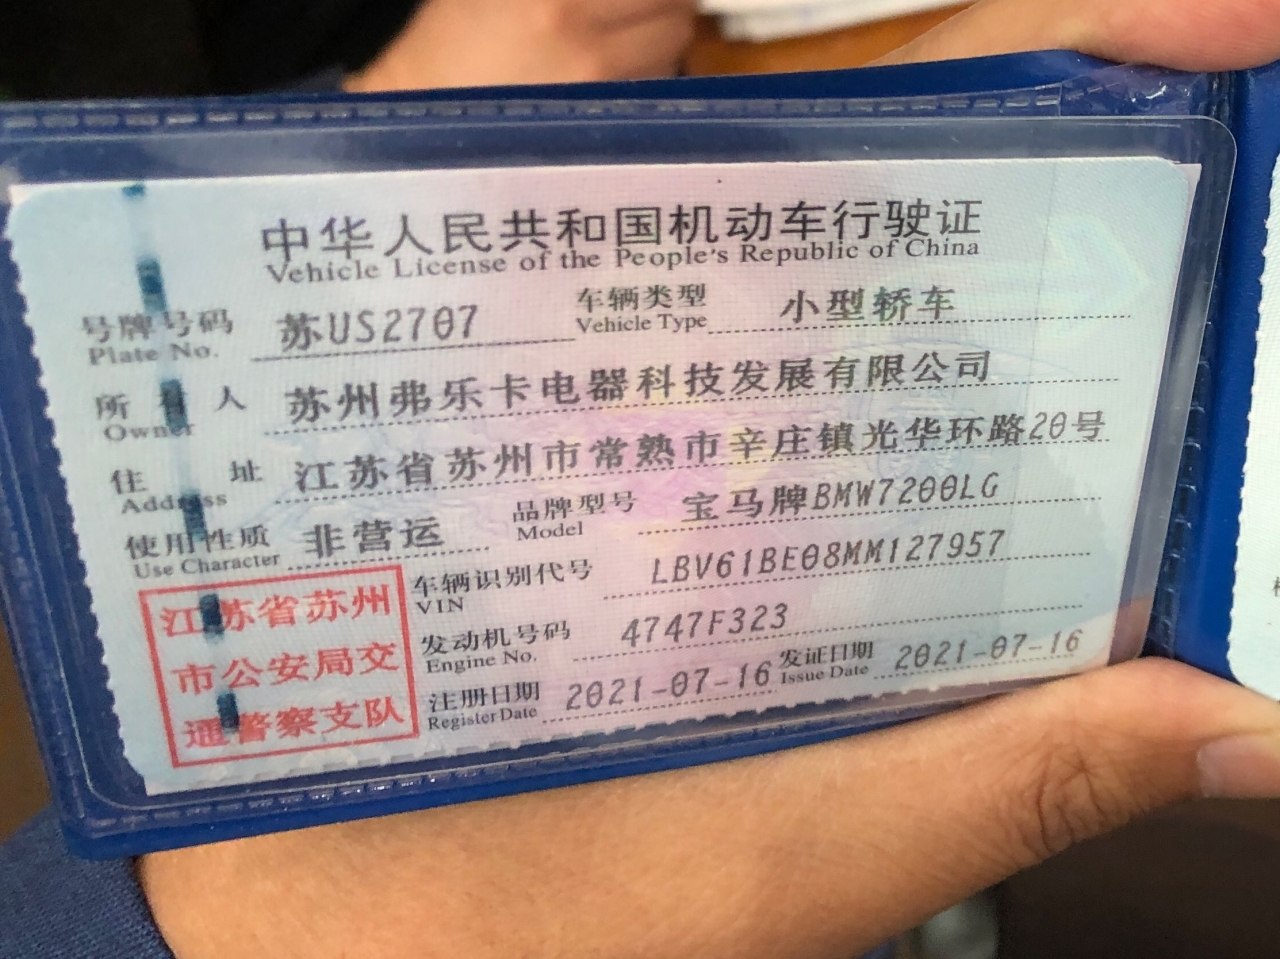 中华人民共和国机动车行驶证
Vehicle License of the People's Republic of China
号牌号码 苏US2707 车辆类型 小型轿车
Plate No. Vehicle Type
所有人 苏州弗乐卡电器科技发展有限公司
Owner
住址 江苏省苏州市常熟市辛庄镇光华环路20号
Address
使用性质 非营运 品牌型号 宝马牌BMW7200LG
Use Character Model
江苏省苏州
市公安局交
通警察支队
车辆识别代号 LBV61BE08MM127957
VIN
发动机号码 4747F323
Engine No.
注册日期 2021-07-16 发证日期 2021-07-16
Register Date Issue Date